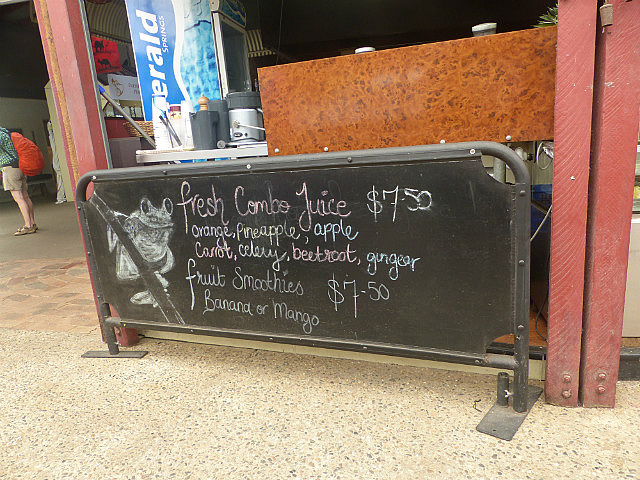 erald
SPRINGS
fresh Combo Juice $7-50
orange, pineapple, apple
Carrot, celery, beetroot, gingear
fruit Smoothies $7-50
Banana or Mango